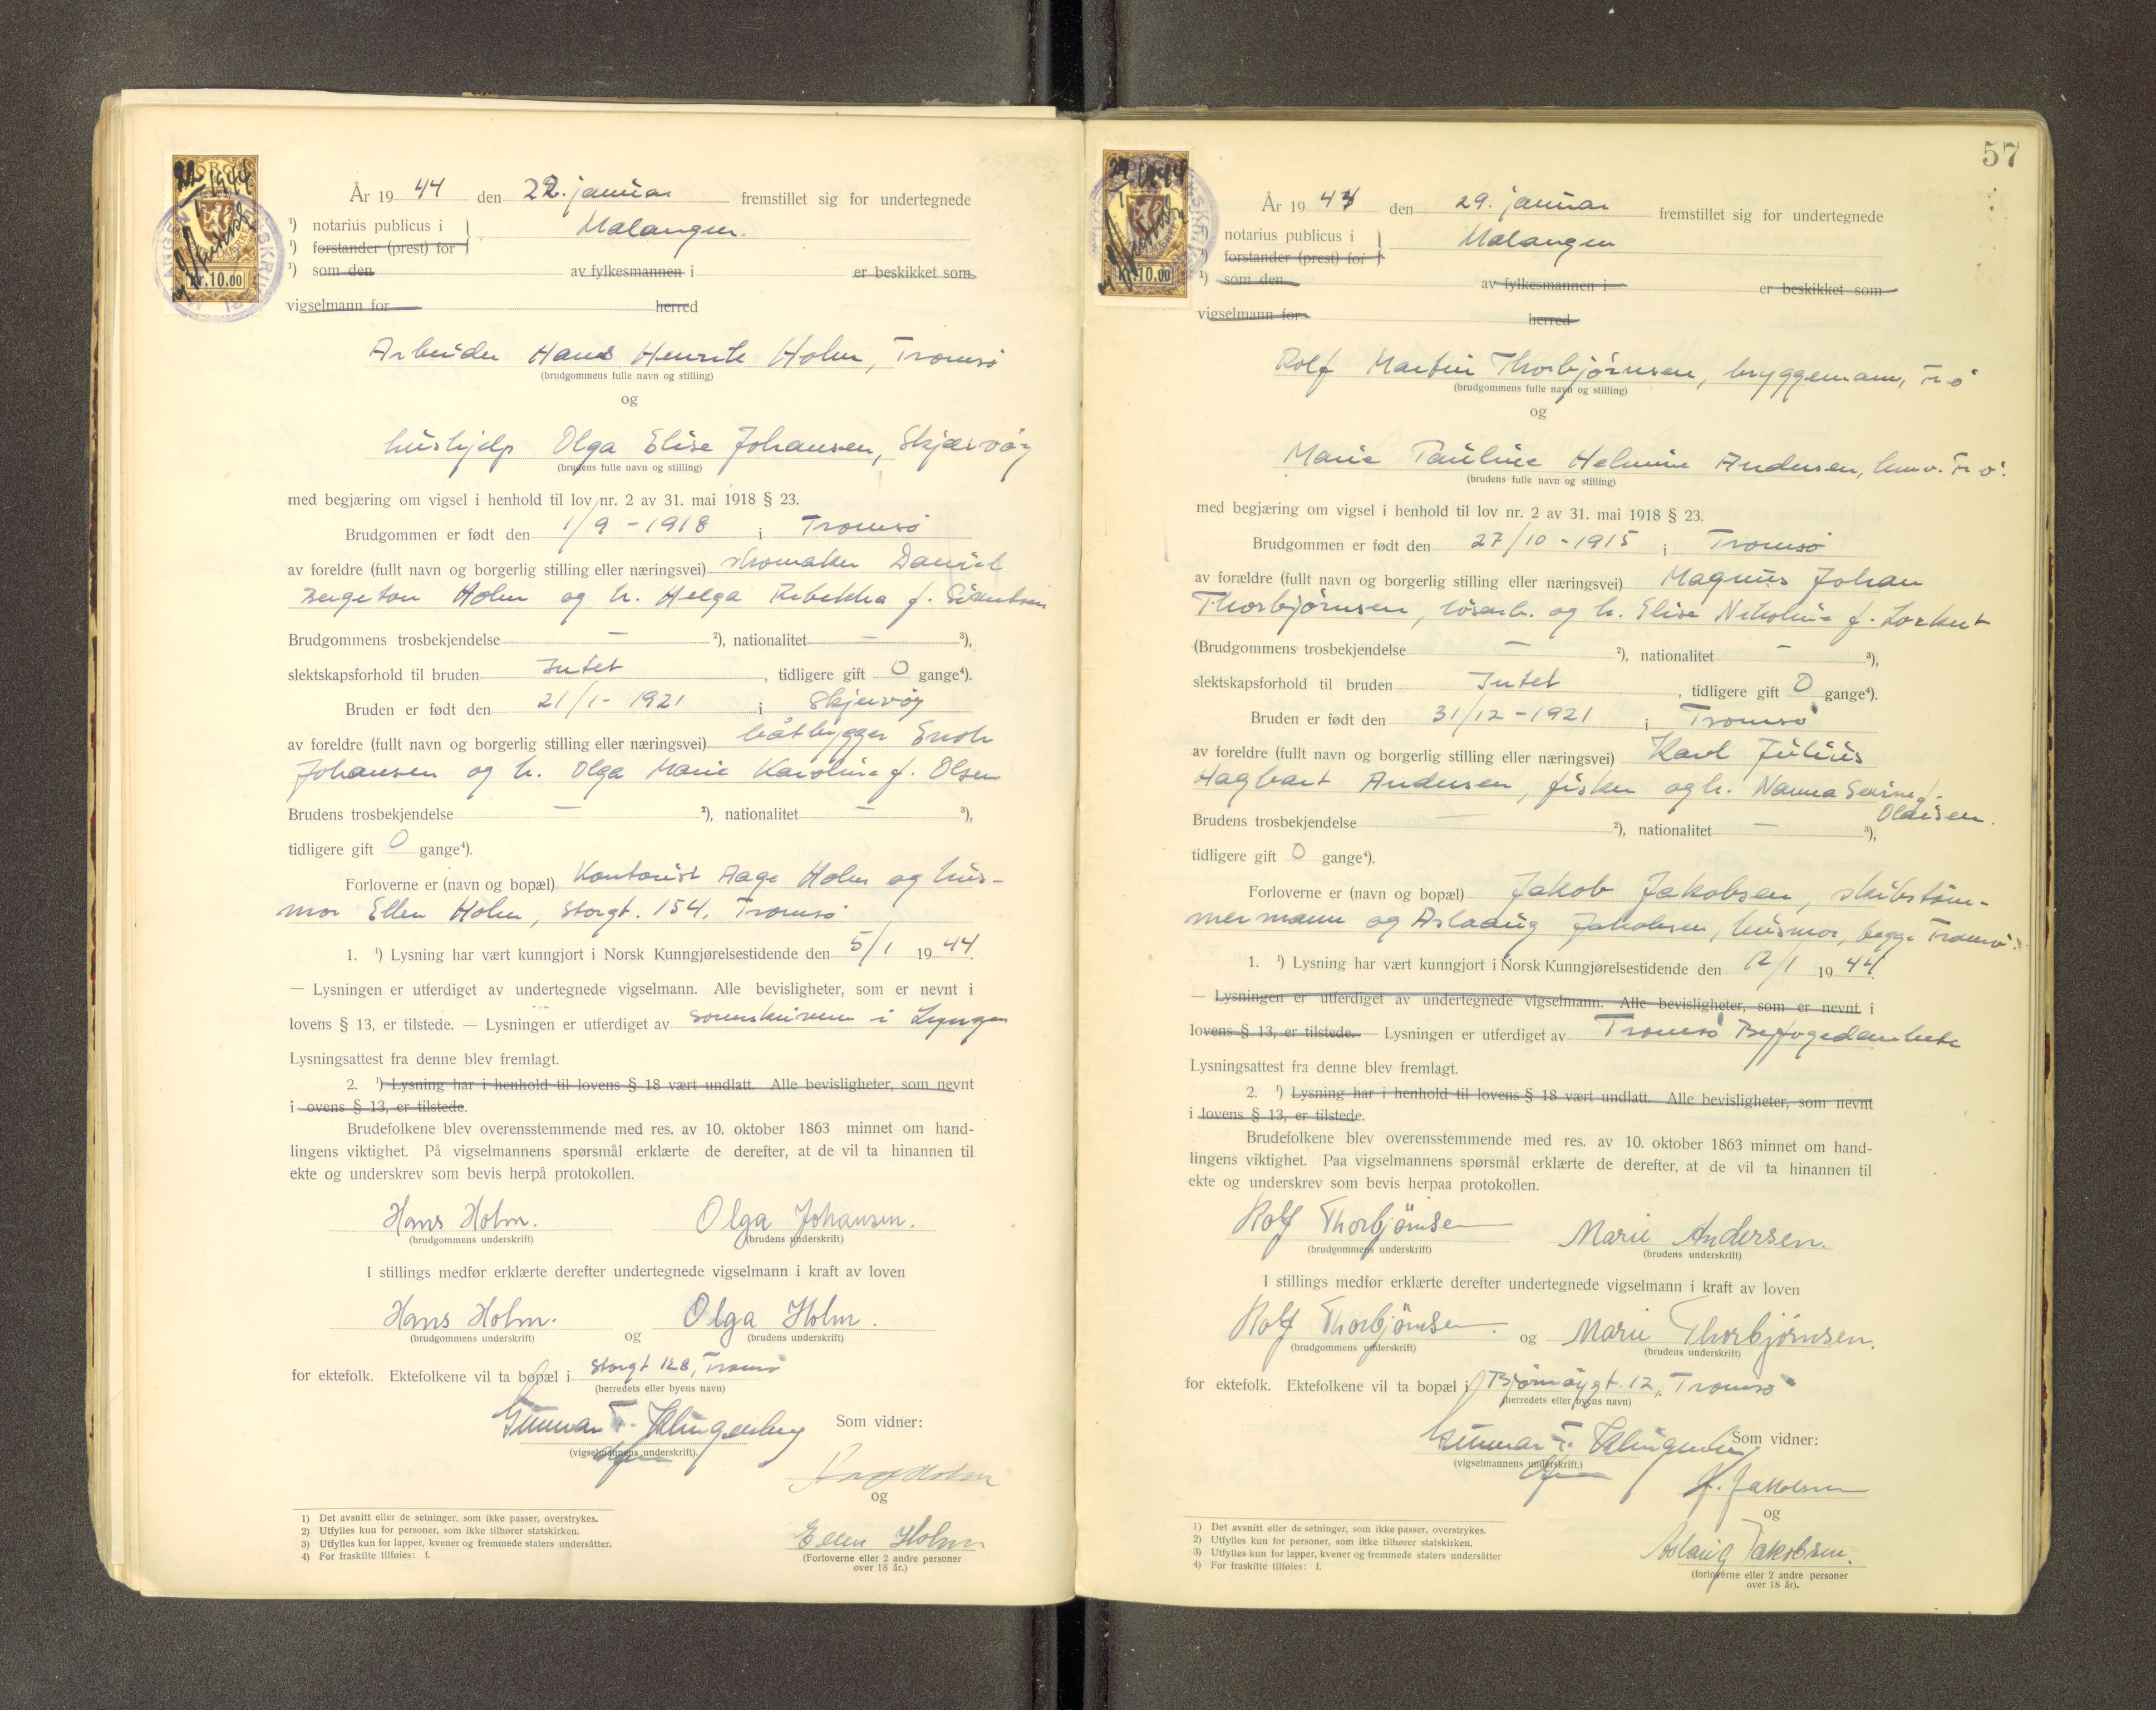 År 19 44 den 22. januar fremstillet sig for undertegnede
¹) notarius publicus i Malangen.
¹) forstander (prest) for
¹) som den av fylkesmannen i er beskikket som
vigselmann for herred
Kr. 10.00
Arbeider Hans Henrik Holm, Tromsø
(brudgommens fulle navn og stilling)
og
hushjelp Olga Elise Johansen, Skjærvøy
(brudens fulle navn og stilling)
med begjæring om vigsel i henhold til lov nr. 2 av 31. mai 1918 § 23.
Brudgommen er født den 1/9 - 1918 i Tromsø
av foreldre (fullt navn og borgerlig stilling eller næringsvei) skomaker Daniel
Holm og h. Helga Rebekka f.
Brudgommens trosbekjendelse — ²), nationalitet — ³),
slektskapsforhold til bruden Intet, tidligere gift 0 gange⁴).
Bruden er født den 21/1 - 1921 i Skjervøy
av foreldre (fullt navn og borgerlig stilling eller næringsvei) båtbygger Enok
Johansen og h. Olga Marie Karoline f. Olsen
Brudens trosbekjendelse — ²), nationalitet — ³),
tidligere gift 0 gange⁴).
Forloverne er (navn og bopæl) Kontorist Aage Holm og hus-
mor Ellen Holm, Storgt. 154, Tromsø
1. ¹) Lysning har vært kunngjort i Norsk Kunngjørelsestidende den 5/1 19 44.
— Lysningen er utferdiget av undertegnede vigselmann. Alle bevisligheter, som er nevnt i
lovens § 13, er tilstede. — Lysningen er utferdiget av sorenskriveren i Lyngen
Lysningsattest fra denne blev fremlagt.
2. ¹) Lysning har i henhold til lovens § 18 vært undlatt. Alle bevisligheter, som nevnt
i ovens § 13, er tilstede.
Brudefolkene blev overensstemmende med res. av 10. oktober 1863 minnet om hand-
lingens viktighet. På vigselmannens spørsmål erklærte de derefter, at de vil ta hinannen til
ekte og underskrev som bevis herpå protokollen.
Hans Holm. Olga Johansen.
(brudgommens underskrift) (brudens underskrift)
I stillings medfør erklærte derefter undertegnede vigselmann i kraft av loven
Hans Holm. og Olga Holm.
(brudgommens underskrift) (brudens underskrift)
for ektefolk. Ektefolkene vil ta bopæl i Storgt 128, Tromsø
(herredets eller byens navn)
Gunnar F. Klingenberg Som vidner:
(vigselmannens underskrift).
Aage Holm
og
Ellen Holm
(Forloverne eller 2 andre personer
over 18 år.)
1) Det avsnitt eller de setninger, som ikke passer, overstrykes.
2) Utfylles kun for personer, som ikke tilhører statskirken.
3) Utfylles kun for lapper, kvener og fremmede staters undersåtter.
4) For fraskilte tilføies: f.
57
År 19 44 den 29. januar fremstillet sig for undertegnede
notarius publicus i Malangen
¹) forstander (prest) for
¹) som den av fylkesmannen i er beskikket som
vigselmann for herred
Kr. 10.00
Rolf Martin Thorbjørnsen, bryggemann, Tr.ø
(brudgommens fulle navn og stilling)
og
Marie Pauline Helmine Andersen, Tr.ø.
(brudens fulle navn og stilling)
med begjæring om vigsel i henhold til lov nr. 2 av 31. mai 1918 § 23.
Brudgommen er født den 27/10 - 1915 i Tromsø
av forældre (fullt navn og borgerlig stilling eller næringsvei) Magnus Johan
Thorbjørnsen, løsarb. og h. Elise Nikoline f.
(Brudgommens trosbekjendelse — ²), nationalitet — ³),
slektskapsforhold til bruden Intet, tidligere gift 0 gange⁴).
Bruden er født den 31/12 - 1921 i Tromsø
av foreldre (fullt navn og borgerlig stilling eller næringsvei) Karl Julius
Hagbart Andersen, fisker og h. Nanna Serine f.
Olaisen.
Brudens trosbekjendelse — ²), nationalitet — ³),
tidligere gift 0 gange⁴).
Forloverne er (navn og bopæl) Jakob Jakobsen, skibstøm-
mermann og Aslaug Jakobsen, husmor, begge Tromsø.
1. ¹) Lysning har vært kunngjort i Norsk Kunngjørelsestidende den 12/1 19 44.
— Lysningen er utferdiget av undertegnede vigselmann. Alle bevisligheter, som er nevnt i
lovens § 13, er tilstede. — Lysningen er utferdiget av Tromsø Byfogedembete
Lysningsattest fra denne blev fremlagt.
2. ¹) Lysning har i henhold til lovens § 18 vært undlatt. Alle bevisligheter, som nevnt
i lovens § 13, er tilstede.
Brudefolkene blev overensstemmende med res. av 10. oktober 1863 minnet om hand-
lingens viktighet. Paa vigselmannens spørsmål erklærte de derefter, at de vil ta hinannen til
ekte og underskrev som bevis herpaa protokollen.
Rolf Thorbjørnsen Marie Andersen.
(brudgommens underskrift) (brudens underskrift)
I stillings medfør erklærte derefter undertegnede vigselmann i kraft av loven
Rolf Thorbjørnsen. og Marie Thorbjørnsen.
(brudgommens underskrift) (brudens underskrift)
for ektefolk. Ektefolkene vil ta bopæl i Bjørnøygt. 12, Tromsø
(herredets eller byens navn)
Gunnar F. Klingenberg Som vidner:
(vigselmannens underskrift.)
J. Jakobsen
og
Aslaug Jakobsen.
(forloverne eller 2 andre personer
over 18 år).
1) Det avsnitt eller de setninger, som ikke passer, overstrykes.
2) Utfylles kun for personer, som ikke tilhører statskirken.
3) Utfylles kun for lapper, kvener og fremmede staters undersåtter
4) For fraskilte tilføies: f.